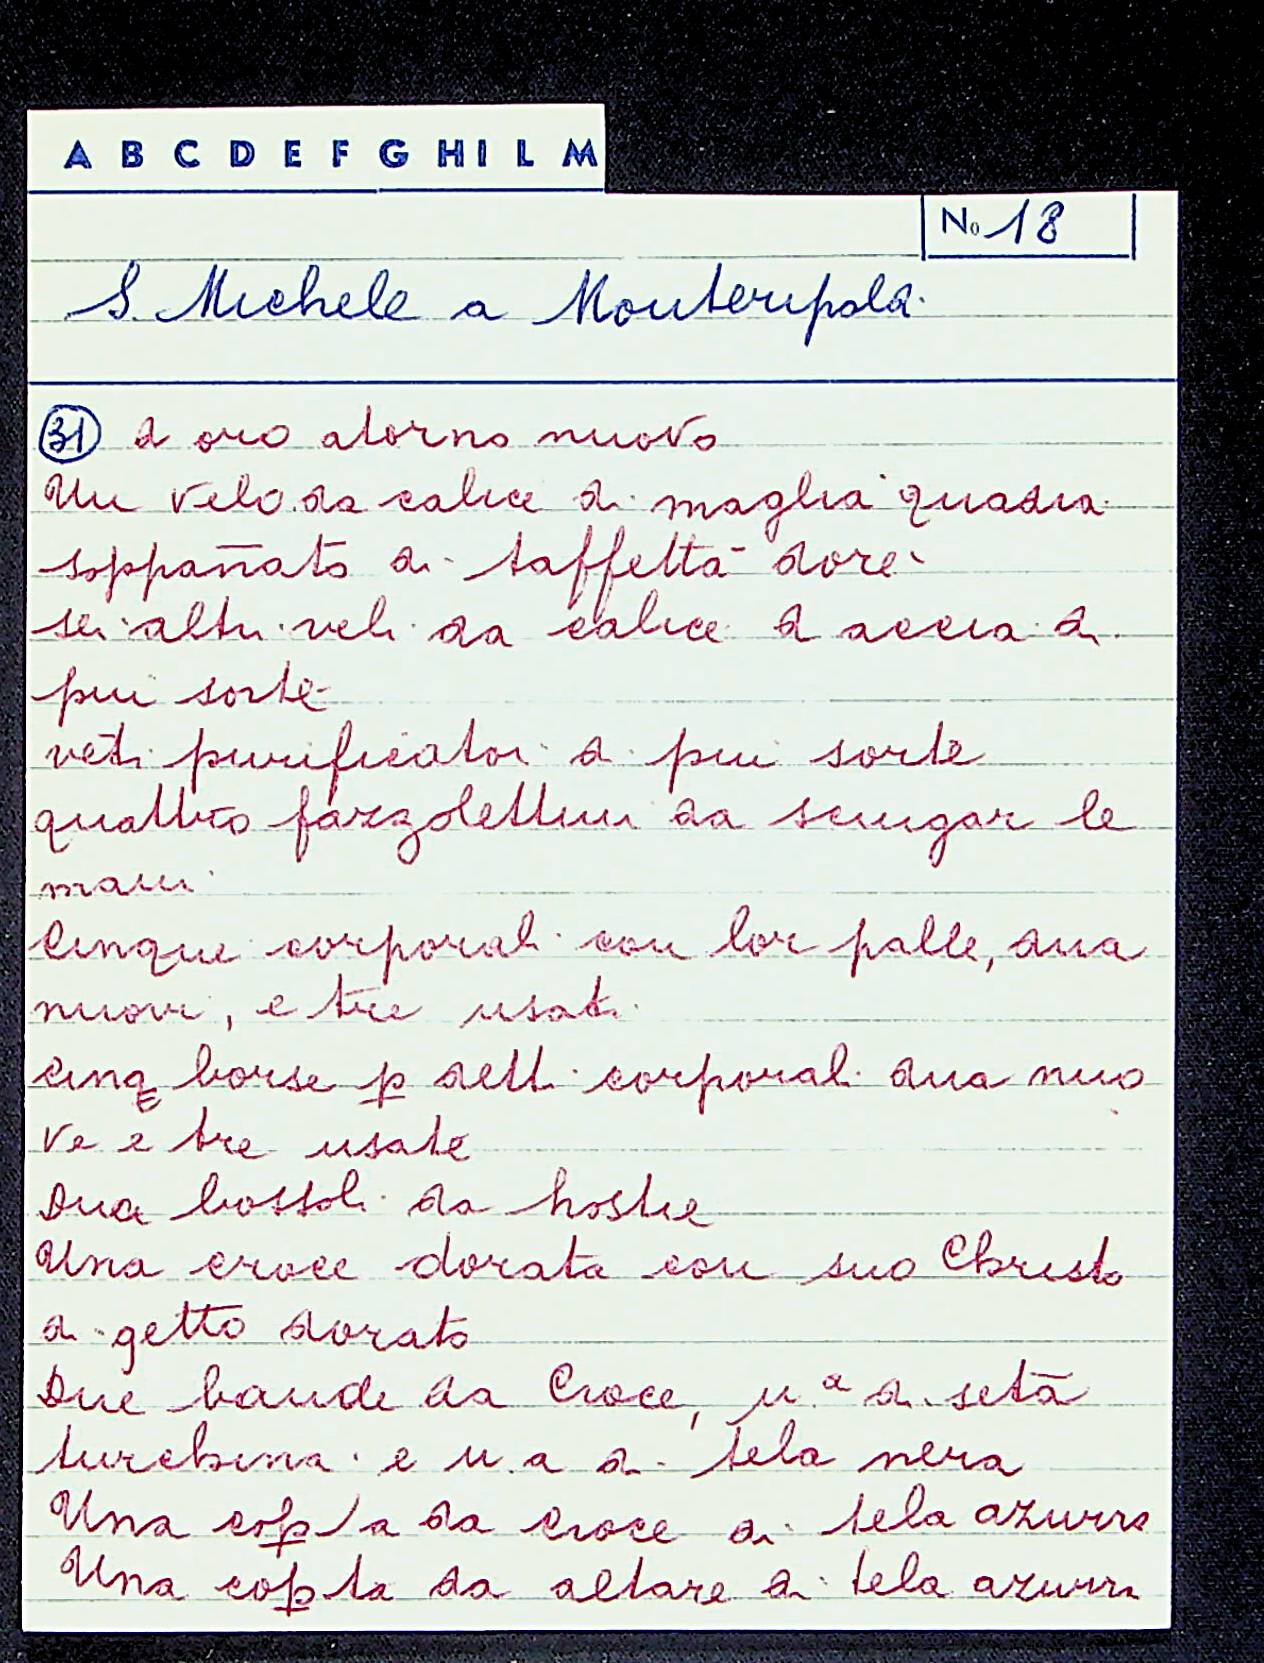 A B C D E F G H I L M
No 18
S. Michele a Monteripoldi
31 d oro atorno nuovo
Un velo da calice di maglia quadra
soppañato di taffettà dorè
sei altri veli da calice d accia di
piu sorte
veti purificatoi di piu sorte
quattro fazzolettini da sciugar le
mani
Cinque corporali con lor palle, dua
nuovi, e tre usati
cinq borse p detti corporali dua nuo
ve e tre usate
Dua bossoli da hostie
Una croce dorata con suo Christo
di getto dorato
Due bande da Croce, u.ª di seta
turchina e u.a di tela nera
Una cop/ta da croce di tela azurra
Una copta da altare di tela azurra